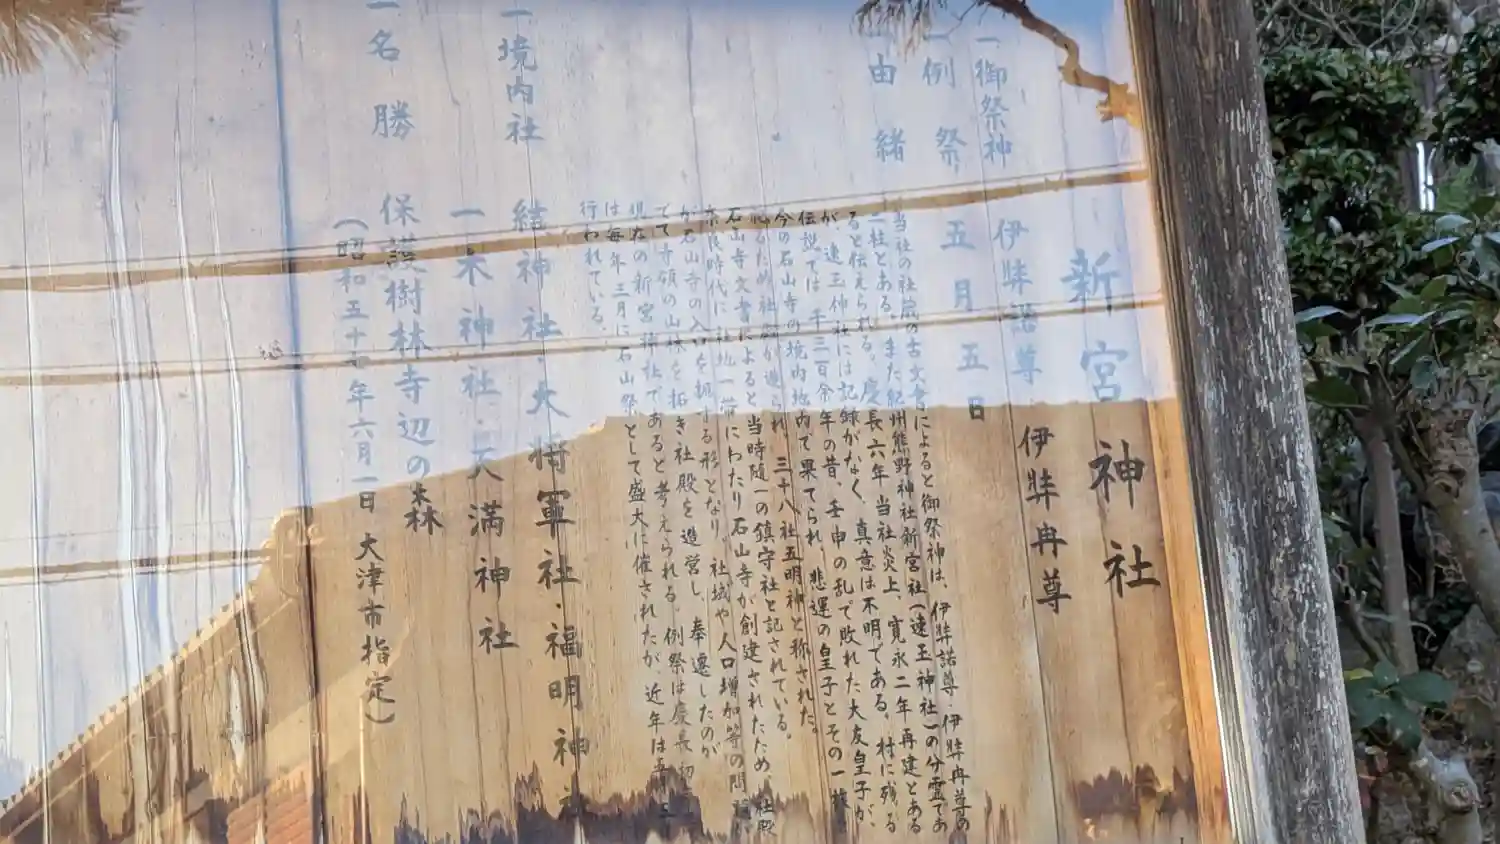 新宮神社
一御祭神 伊弉諾尊 伊弉冉尊
一例祭 五月五日
由緒
当社の社蔵の古文書によると御祭神は、伊弉諾尊・伊弉冉尊の
二柱とある。また紀州熊野神社新宮社(速玉神社)の分霊であ
ると伝えられる。慶長六年 当社炎上、寛永二年再建とある
が、速玉神社には記録がなく、真意は不明である。村に残る
伝説では、千三百余年の昔、壬申の乱で敗れた大友皇子が、
今の石山寺の境内地内で果てられ、悲運の皇子とその一族
るため社殿が造られ、三十八社五明神と称された。
石山寺文書によると当時随一の鎮守社と記されている。
奈良時代に社地一帯にわたり石山寺が創建されたため、社殿
が石山寺の入口を扼する形となり、社域や人口増加等の問
てて寺領の山体を拓き社殿を造営し、奉遷したのが
現在の新宮神社であると考えられる。例祭は慶長初
は毎年三月に石山祭として盛大に催されたが、近年は五
行われている。
一境内社 結神社・大将軍社・福明神社
一木神社・天満神社
一名勝 保護樹林寺辺の森
(昭和五十七年六月一日 大津市指定)